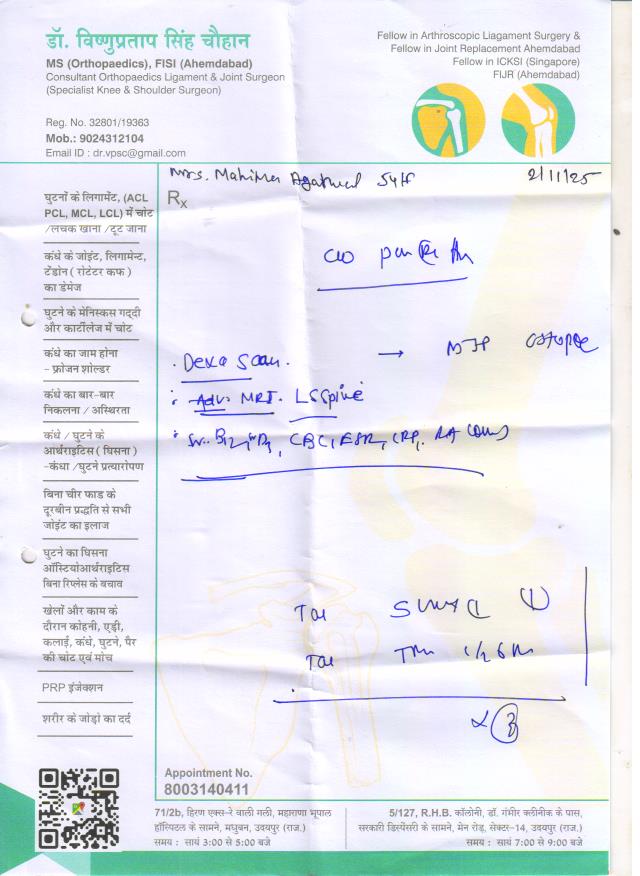 डॉ. विष्णुप्रताप सिंह चौहान
MS (Orthopaedics), FISI (Ahemdabad)
Consultant Orthopaedics Ligament & Joint Surgeon
(Specialist Knee & Shoulder Surgeon)
Reg. No. 32801/19363
Mob.: 9024312104
Email ID : dr.vpsc@gmail.com
Fellow in Arthroscopic Liagament Surgery &
Fellow in Joint Replacement Ahemdabad
Fellow in ICKSI (Singapore)
FIJR (Ahemdabad)
Mrs. Mahima Agarwal 54/F 2/11/25
Rx
घुटनों के लिगामेंट, (ACL
PCL, MCL, LCL) में चोट
/लचक खाना /टूट जाना
कंधे के जोइंट, लिगामेन्ट,
टेंडोन ( रोटेटर कफ )
का डेमेज
घुटने के मेनिस्कस गद्दी
और कार्टीलेज में चोट
कंधे का जाम होना
- फ्रोजन शोल्डर
कंधे का बार-बार
निकलना / अस्थिरता
कंधे / घुटने के
आर्थराइटिस ( घिसना )
-कंधा /घुटने प्रत्यारोपण
बिना चीर फाड के
दूरबीन प्रद्धति से सभी
जोइंट का इलाज
घुटने का घिसना
ऑस्टियोआर्थराइटिस
बिना रिप्लेस के बचाव
खेलों और काम के
दौरान कोहनी, एड़ी,
कलाई, कंधे, घुटने, पैर
की चोट एवं मोच
PRP इंजेक्शन
शरीर के जोड़ों का दर्द
c/o
. Dexa Scan. →
: Adv. MRI. LS Spine
: Sr. B12, D3, CBC, ESR, CRP, RA
Tab
Tab
x 3
Appointment No.
8003140411
71/2b, हिरण एक्स-रे वाली गली, महाराणा भूपाल
हॉस्पिटल के सामने, मधुबन, उदयपुर (राज.)
समय : सायं 3:00 से 5:00 बजे
5/127, R.H.B. कॉलोनी, डॉ. गंभीर क्लीनीक के पास,
सरकारी डिस्पेंसरी के सामने, मेन रोड़, सेक्टर-14, उदयपुर (राज.)
समय : सायं 7:00 से 9:00 बजे